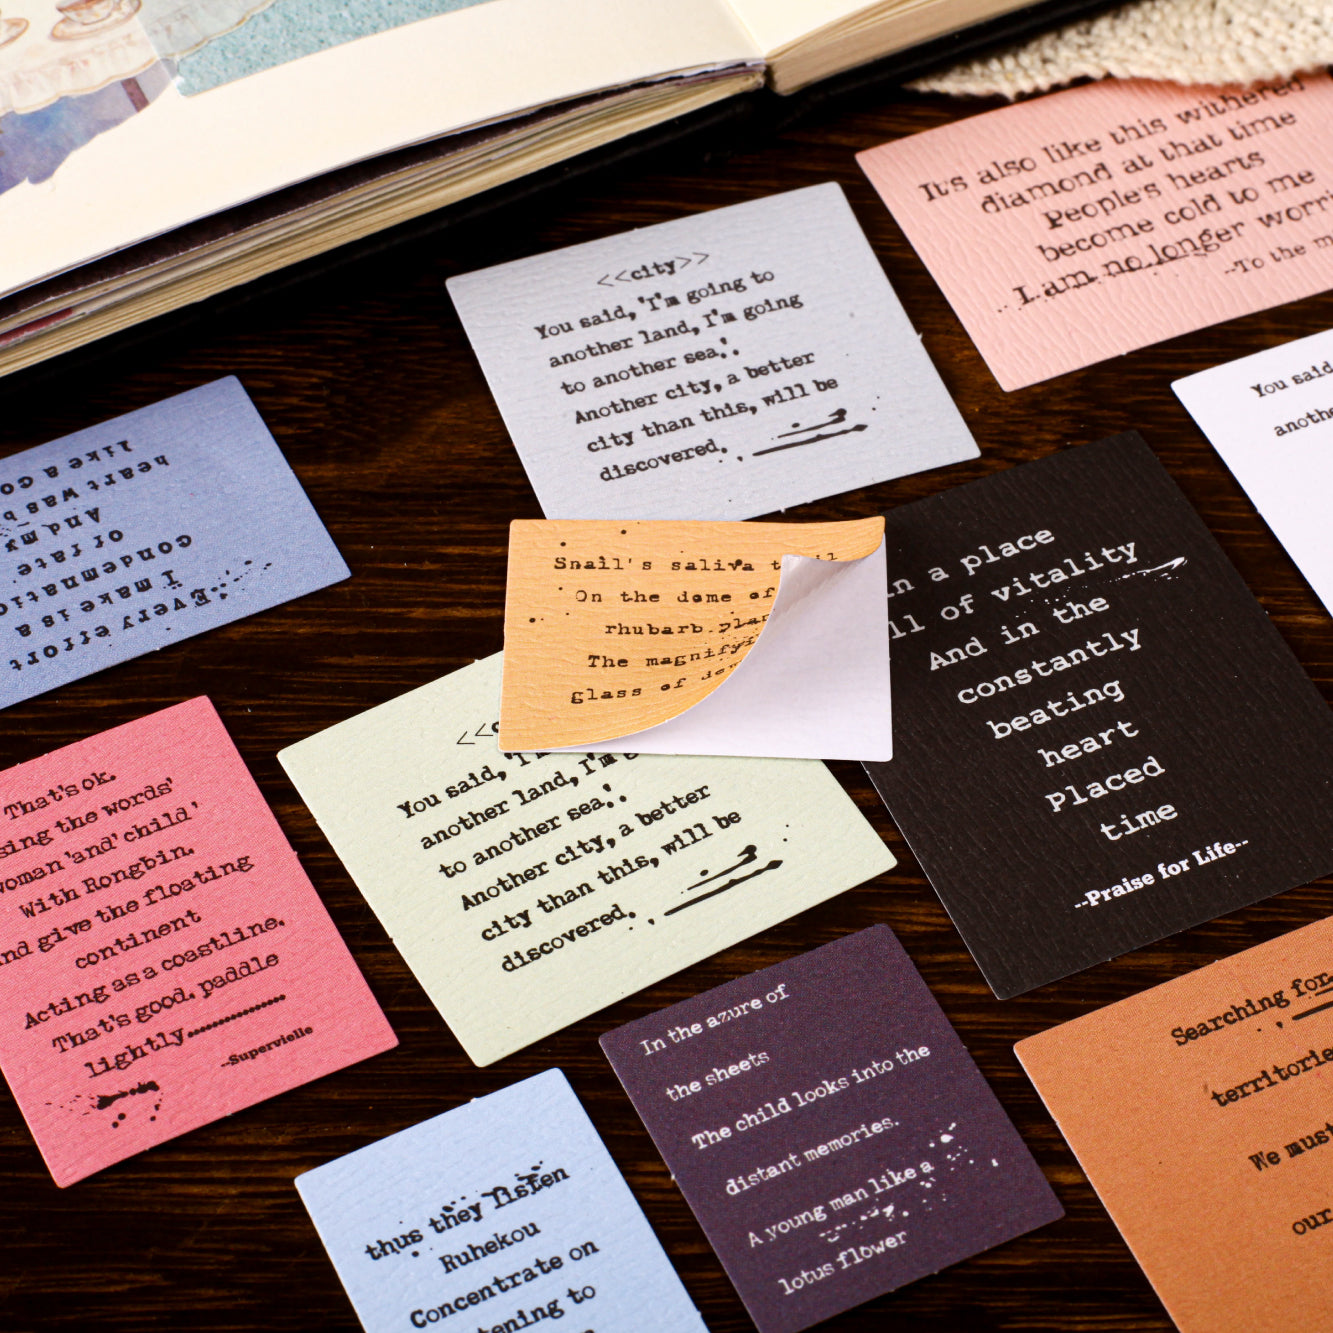 It's also like this withered
diamond at that time
People's hearts
become cold to me
I am no longer
--To the
<<city>>
You said, 'I'm going to
another land, I'm going
to another sea'.
Another city, a better
city than this, will be
discovered.
You said
Every effort
I make is a
of fate.
And my
heart was
like a
Snail's saliva
On the dome of
rhubarb
The
glass of
a place
of vitality
And in the
constantly
beating
heart
Placed
time
--Praise for Life--
<<
You said,
another land, I'm
to another sea'.
Another city, a better
city than this, will be
discovered.
That's ok.
the words'
'and' child'
With Rongbin.
give the floating
continent
Acting as a coastline.
That's good. paddle
lightly................
--Supervielle
In the azure of
the sheets
The child looks into the
distant memories.
A young man like a
lotus flower
thus they listen
Ruhekou
Concentrate on
to
Searching for
We must
our